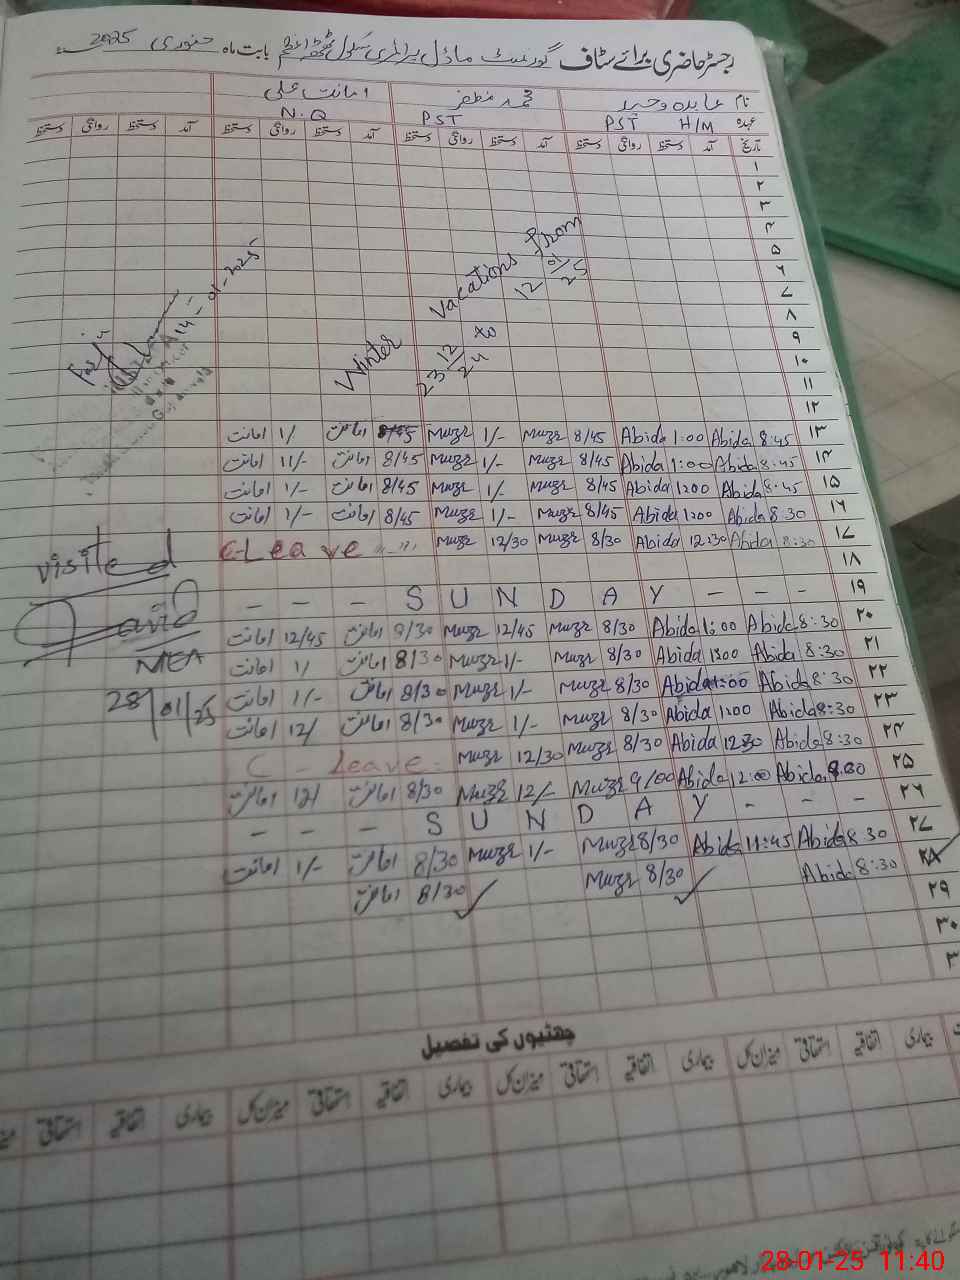 رجسٹر حاضری برائے سٹاف گورنمنٹ ماڈل پرائمری سکول ٹھٹھہ اعظم بابت ماہ جنوری 2025ء
نام عابدہ وحید محمد مظفر امانت علی
عہدہ H/M PST PST N.Q
تاریخ آمد دستخط روانگی دستخط آمد دستخط روانگی دستخط آمد دستخط روانگی دستخط آمد دستخط روانگی دستخط
۱
۲
۳
۴
۵
۶
۷
۸
۹
۱۰
۱۱
۱۲
Winter vacations from
23 12/24 to 12 01/25
14-01-2025
۱۳ Abida 8:45 Abida 1:00 8/45 Muzr 1/- Muzr 8/45 امانت 1/ امانت
۱۴ Abida 8:45 Abida 1:00 8/45 Muzr 1/- Muzr 8/45 امانت 11/- امانت
۱۵ Abida 8:45 Abida 1200 8/45 Muzr 1/- Muzr 8/45 امانت 1/- امانت
۱۶ Abida 8:30 Abida 1200 8/45 Muzr 1/- Muzr 8/45 امانت 1/- امانت
۱۷ Abida 8:30 Abida 12:30 8/30 Muzr 12/30 Muzr C-Leave
۱۸
۱۹ - - - S U N D A Y - - -
۲۰ Abida 8:30 Abida 1:00 8/30 Muzr 12/45 Muzr 9/30 امانت 12/45 امانت
۲۱ Abida 8:30 Abida 1:00 8/30 Muzr 1/- Muzr 8/30 امانت 1/ امانت
۲۲ Abida 8:30 Abida 1:00 8/30 Muzr 1/- Muzr 8/30 امانت 1/- امانت
۲۳ Abida 8:30 Abida 1200 8/30 Muzr 1/- Muzr 8/30 امانت 12/ امانت
۲۴ Abida 8:30 Abida 1230 8/30 Muzr 12/30 Muzr C - Leave
۲۵ Abida 8:30 Abida 12:00 9/00 Muzr 12/- Muzr 8/30 امانت 12/ امانت
۲۶ - - - S U N D A Y - - -
۲۷ Abida 8:30 Abida 11:45 8/30 Muzr 1/- Muzr 8/30 امانت 1/- امانت
۲۸ Abida 8:30 8/30 Muzr 8/30 امانت
۲۹
۳۰
۳
visited
Javid
MEA
28/01/25
چھٹیوں کی تفصیل
بیماری اتفاقیہ استحقاقی میزان کل بیماری اتفاقیہ استحقاقی میزان کل بیماری اتفاقیہ استحقاقی میزان کل بیماری اتفاقیہ استحقاقی
28-01-25 11:40